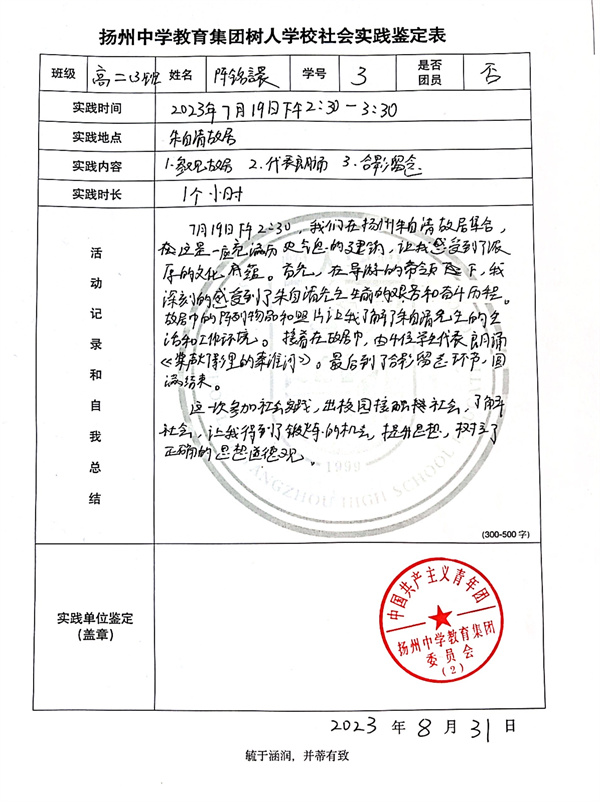 扬州中学教育集团树人学校社会实践鉴定表
班级 高二13班 姓名 陈铭 学号 3 是否团员 否
实践时间 2023年7月19日下午2:30-3:30
实践地点 朱自清故居
实践内容 1.参观故居 2.代表朗诵 3.合影留念
实践时长 1个小时
活动记录和自我总结
7月19日下午2:30，我们在扬州朱自清故居集合，
这是一座充满历史气息的建筑，让我感受到了深
厚的文化底蕴。首先，在导游的带领下，我
深刻的感受到了朱自清先生生前的艰苦和奋斗历程。
故居中的陈列物品和照片让我了解了朱自清先生的生
活和工作环境。接着在故居中，由4位学生代表朗诵
《桨声灯影里的秦淮河》。最后到了合影留念环节，圆
满结束。
这一次参加社会实践，出校园接触社会，了解
社会，让我得到了锻炼的机会，提升思想，树立了
正确的思想道德观。
1999
YANGZHOU HIGH SCHOOL
(300-500字)
实践单位鉴定
(盖章)
中国共产主义青年团
扬州中学教育集团
委员会
(2)
2023 年 8 月 31 日
毓于涵润，并蒂有致